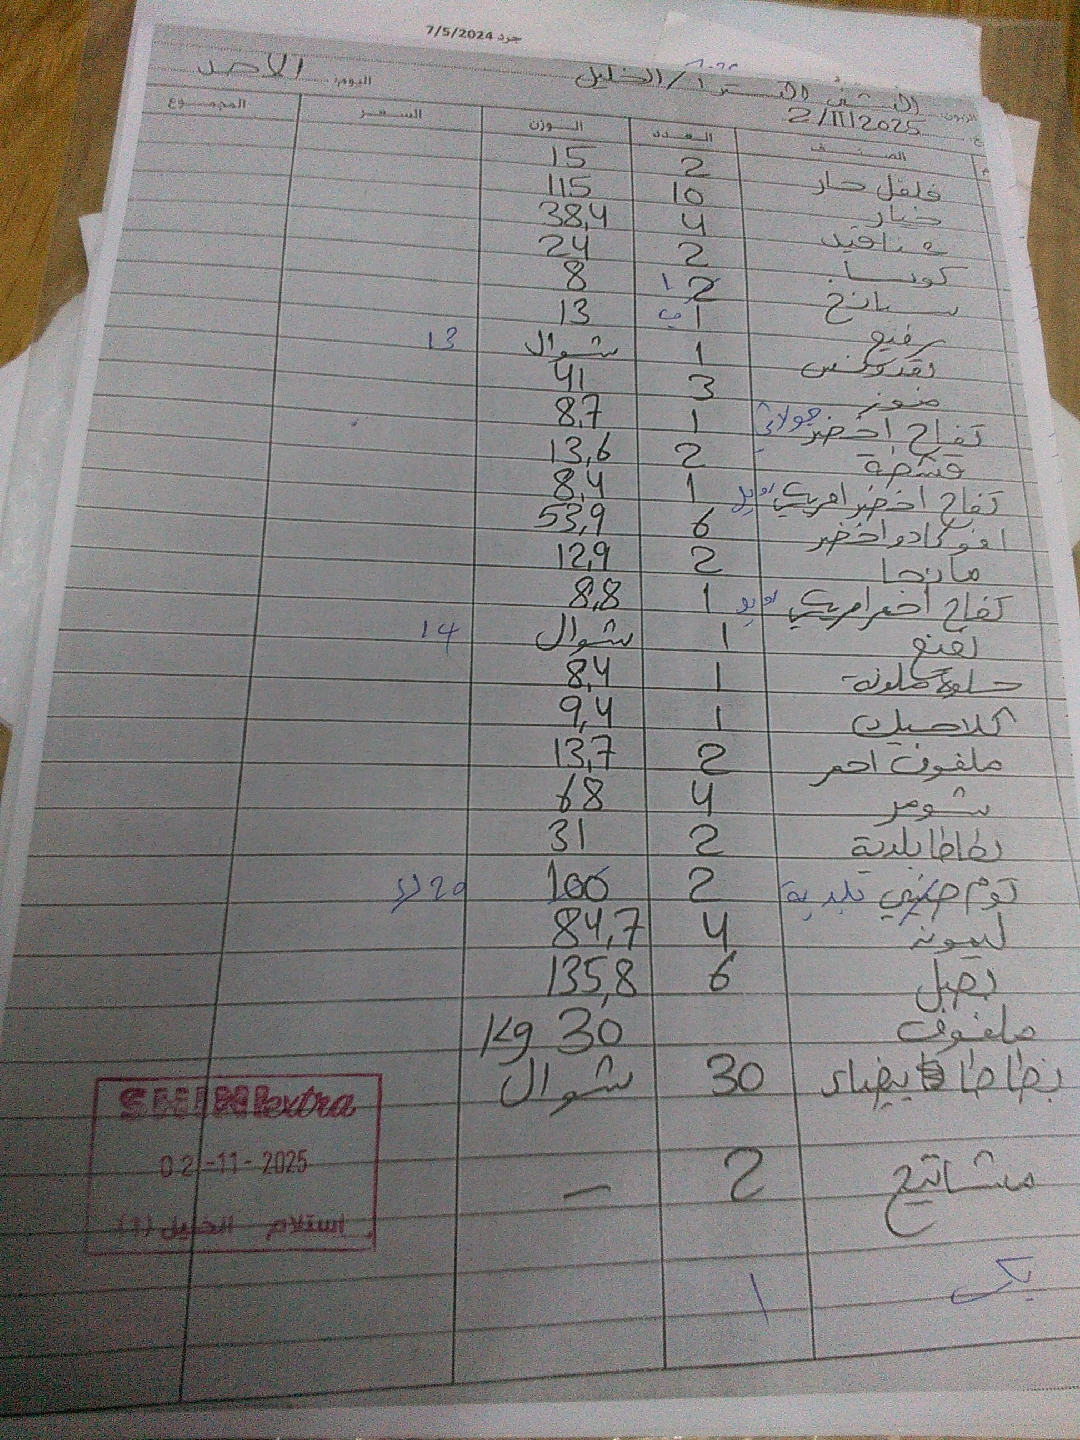 جرد 7/5/2024
الشني اكسترا / الخليل اليوم: الاحد
2/11/2025
الصنف العدد الوزن السعر المجموع
فلفل حار 2 15
خيار 10 115
عناقيد 4 38,4
كوسا 2 24
سبانخ 2 1 8
رفيع 1 13
بقدونس 1 شوال 13
موز 3 41
تفاح اخضر جولاني 1 8,7
قشطة 2 13,6
تفاح اخضر امريكي 1 8,4
افوكادو اخضر 6 53,9
مانجا 2 12,9
تفاح احمر امريكي 1 8,8
نعنع 1 شوال 14
حلوة ملونة 1 8,4
كلاسيك 1 9,4
ملفوف احمر 2 13,7
شومر 4 68
بطاطا بلدية 2 31
توم صيني بلدية 2 100 20
ليمونة 4 84,7
بصل 6 135,8
ملفوف 30 Kg
بطاطا بيضاء 30 شوال
مشاتيح 2 —
1
extra
02-11-2025
استلام الخليل (1)